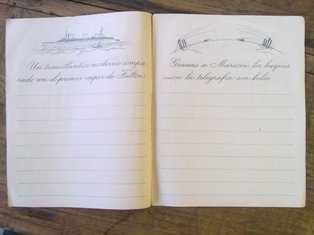 Un trasatlántico moderno compa
rado con el primer vapor de Fulton
Gracias a Marconi los buques
usan la telegrafía sin hilos